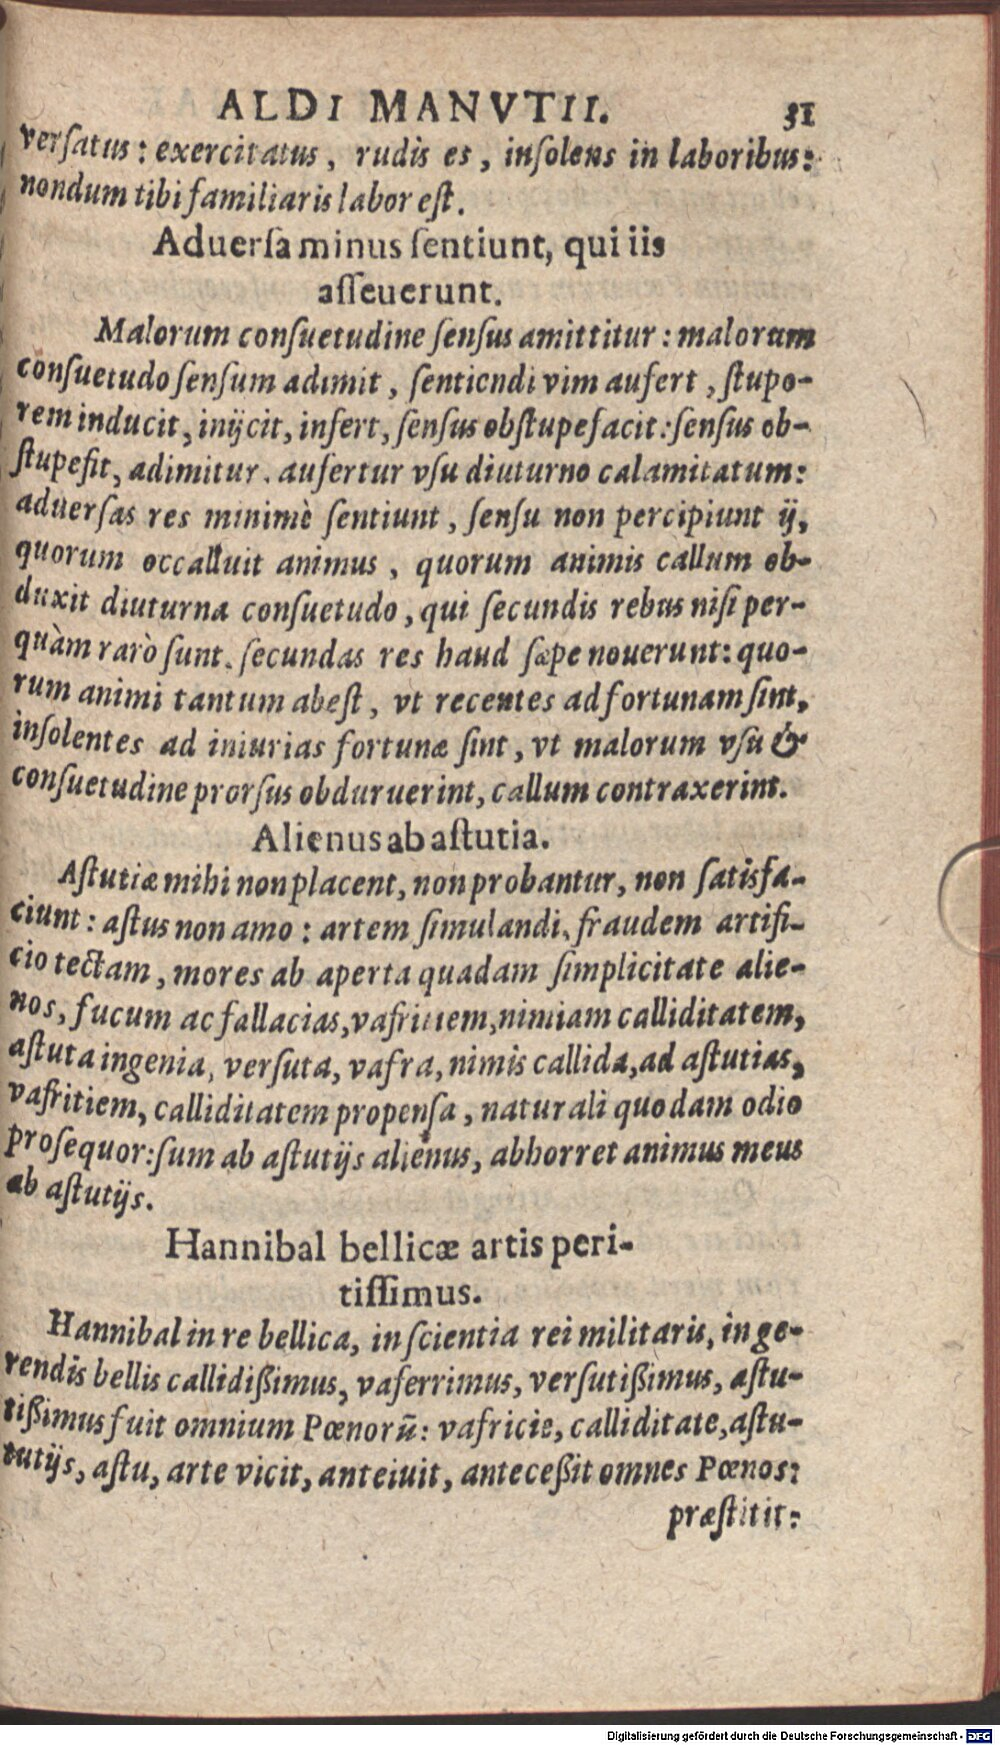 ALDI MANVTII. 31
verſatus: exercitatus, rudis es, inſolens in laboribus:
nondum tibi familiaris labor eſt.
Aduerſa minus ſentiunt, qui iis
aſſeuerunt.
Malorum conſuetudine ſenſus amittitur: malorum
conſuetudo ſenſum adimit, ſentiendi vim aufert, ſtupo-
rem inducit, inijcit, infert, ſenſus obſtupefacit: ſenſus ob-
ſtupefit, adimitur, aufertur vſu diuturno calamitatum:
aduerſas res minimè ſentiunt, ſenſu non percipiunt ij,
quorum occalluit animus, quorum animis callum ob-
duxit diuturna conſuetudo, qui ſecundis rebus niſi per-
quàm rarò ſunt, ſecundas res haud ſæpe nouerunt: quo-
rum animi tantum abeſt, vt recentes ad fortunam ſint,
inſolentes ad iniurias fortunæ ſint, vt malorum vſu &
conſuetudine prorſus obduruerint, callum contraxerint.
Alienus ab aſtutia.
Aſtutiæ mihi non placent, non probantur, non ſatisfa-
ciunt: aſtus non amo: artem ſimulandi, fraudem artifi-
cio tectam, mores ab aperta quadam ſimplicitate alie-
nos, fucum ac fallacias, vafritiem, nimiam calliditatem,
aſtuta ingenia, verſuta, vafra, nimis callida, ad aſtutias,
vafritiem, calliditatem propenſa, naturali quodam odio
proſequor: ſum ab aſtutijs alienus, abhorret animus meus
ab aſtutijs.
Hannibal bellicæ artis peri-
tiſſimus.
Hannibal in re bellica, in ſcientia rei militaris, in ge-
rendis bellis callidißimus, vaferrimus, verſutißimus, aſtu-
tißimus fuit omnium Pœnorū: vafricie, calliditate, aſtu-
tutijs, aſtu, arte vicit, anteiuit, anteceßit omnes Pœnos:
præſtitit:
Digitalisierung gefördert durch die Deutsche Forschungsgemeinschaft - DFG